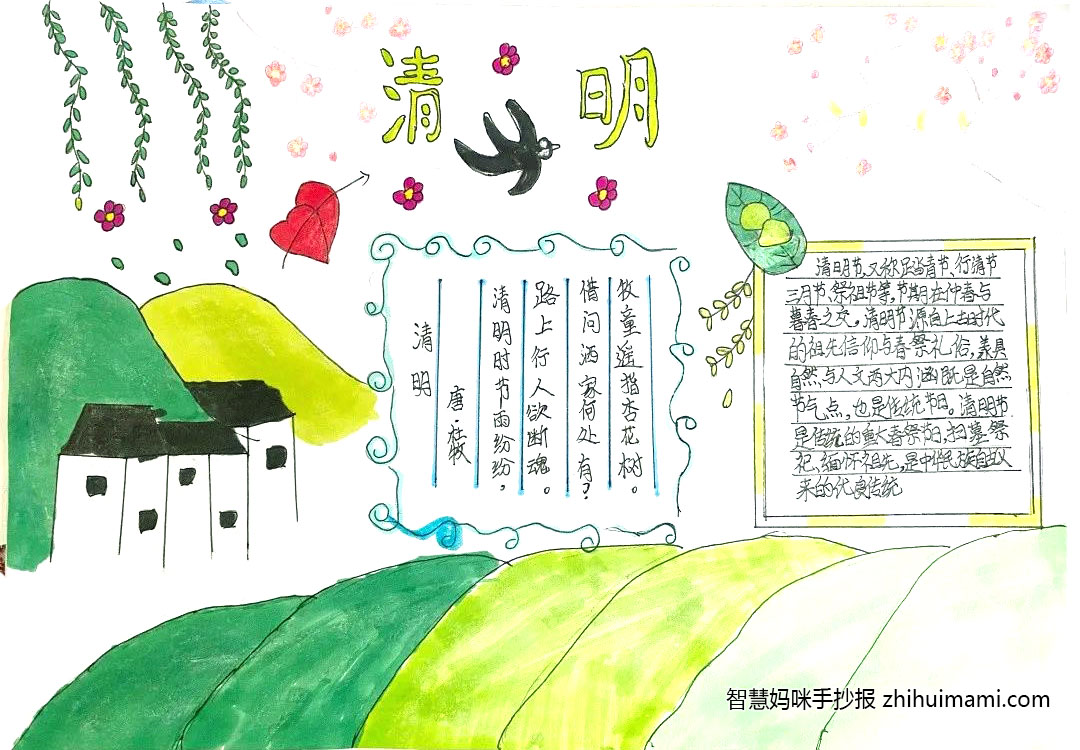 清明
清明
唐·杜牧
清明时节雨纷纷，
路上行人欲断魂。
借问洒家何处有？
牧童遥指杏花树。
清明节，又称踏青节、行清节
三月节、祭祖节等，节期在仲春与
暮春之交。清明节源自上古时代
的祖先信仰与春祭礼俗，兼具
自然与人文两大内涵，既是自然
节气点，也是传统节日。清明节
是传统的重大春祭节日，扫墓祭
祀，缅怀祖先，是中华民族自古以
来的优良传统
智慧妈咪手抄报 zhihuimami.com